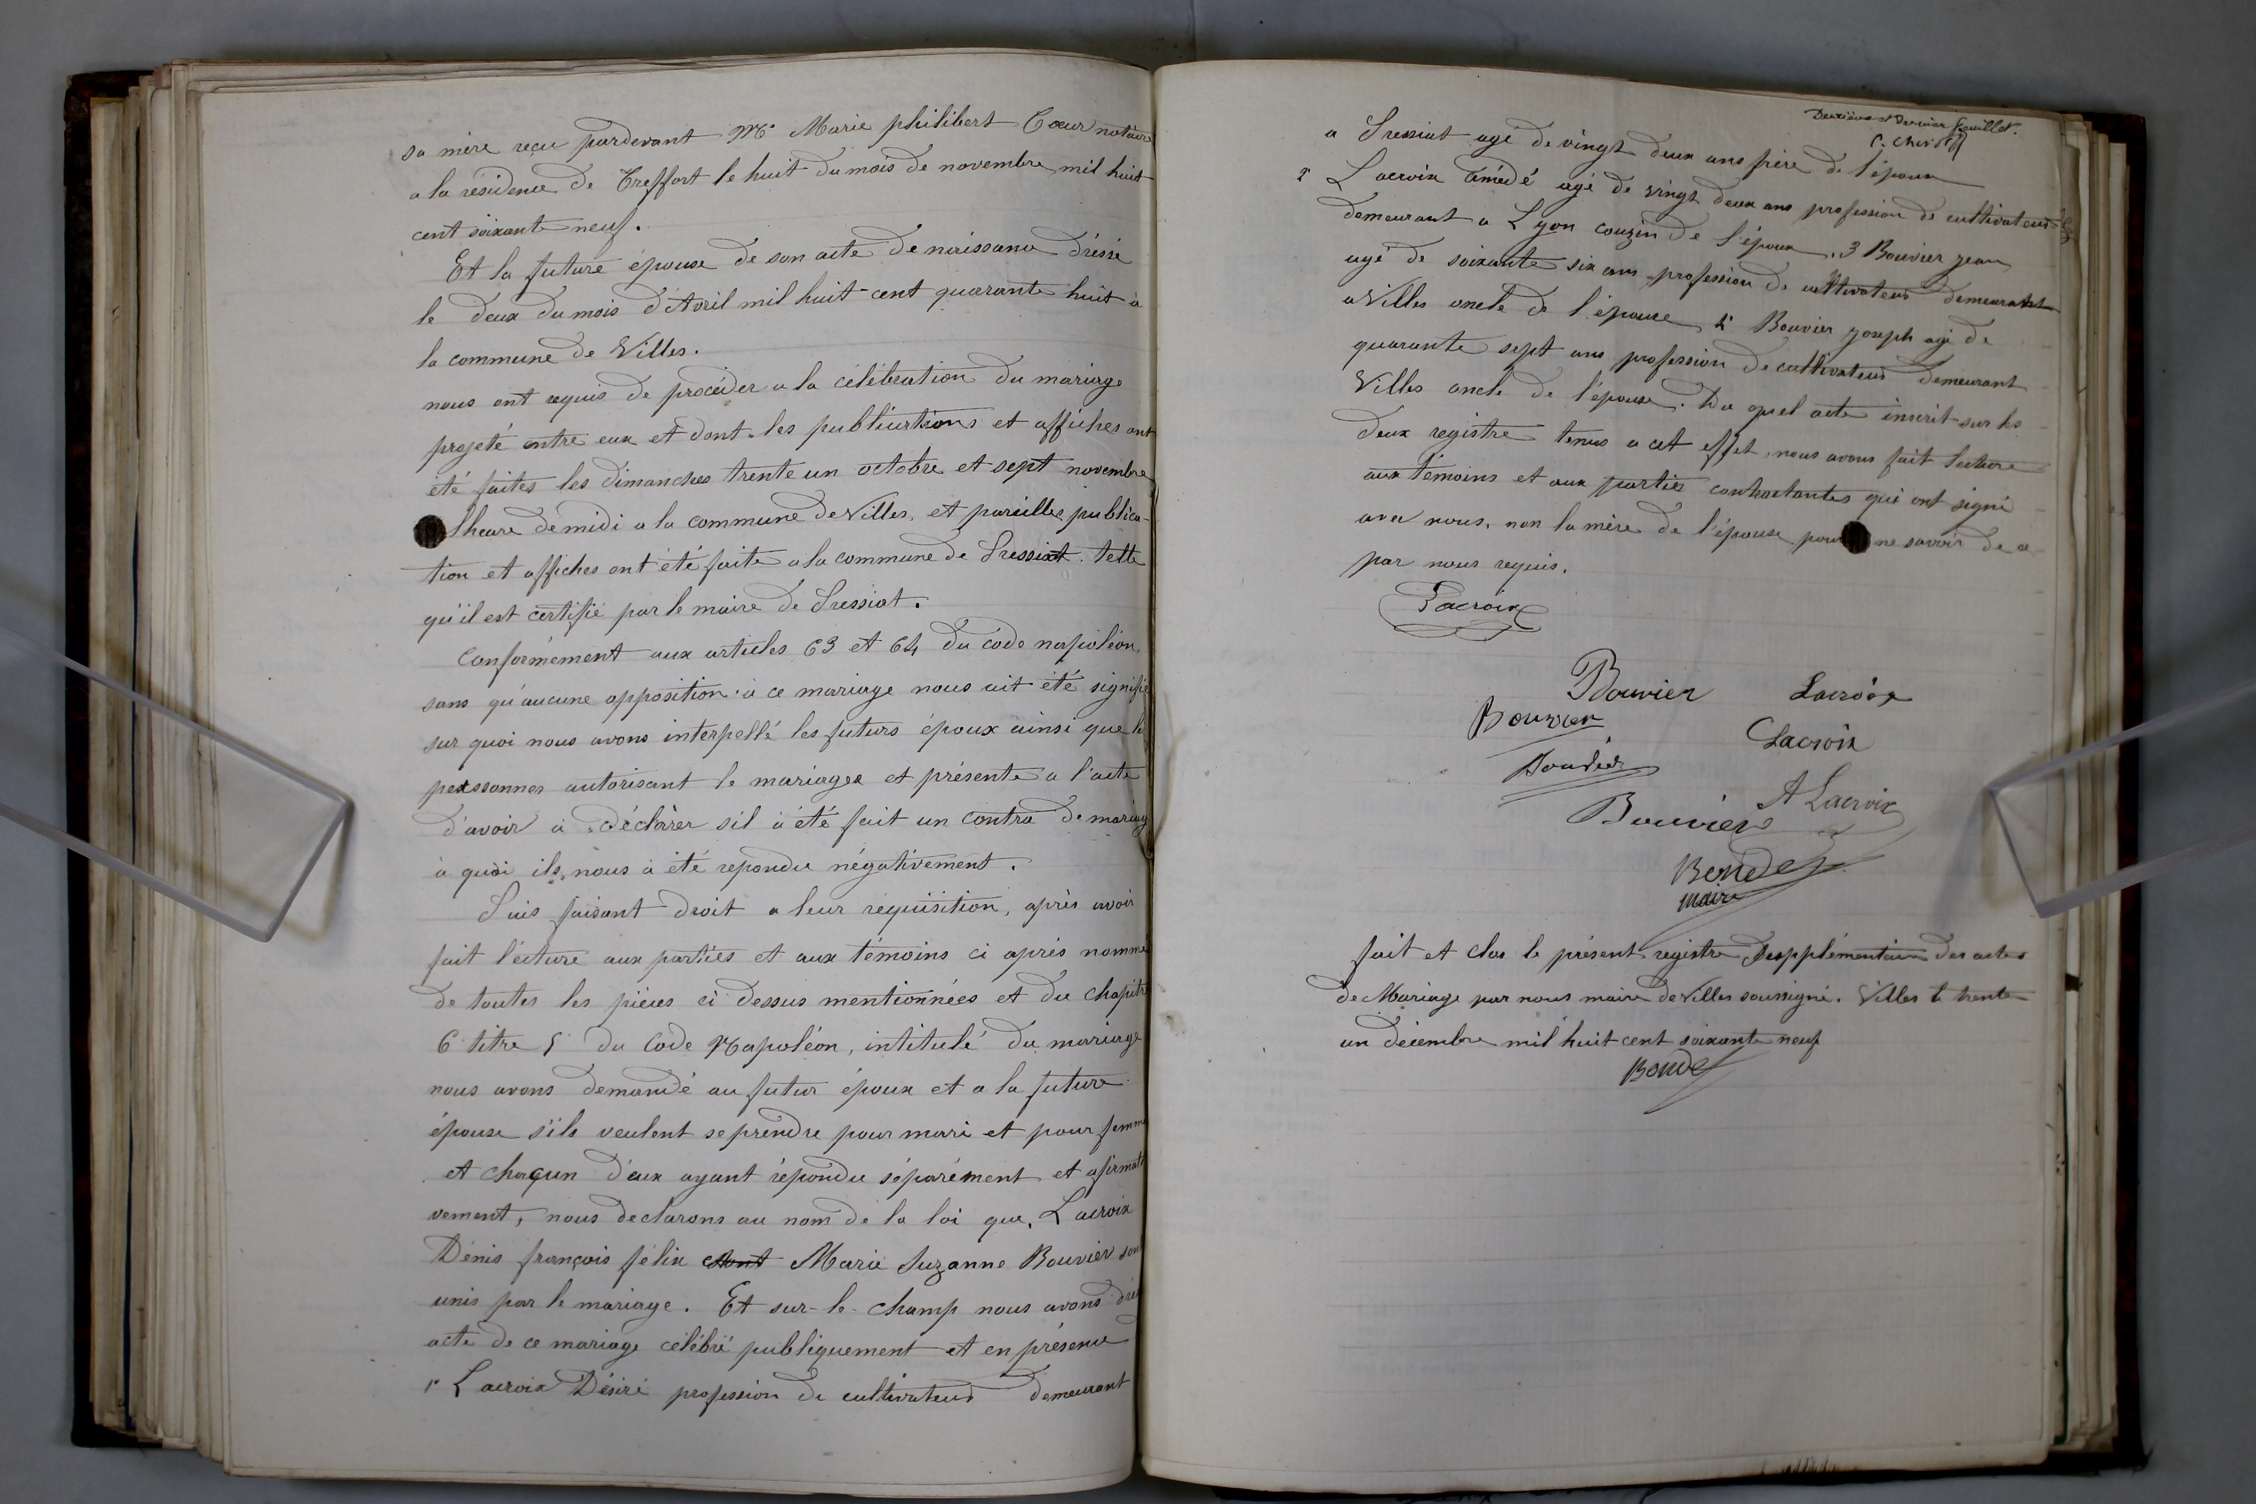 sa mère reçu pardevant Me Marie philibert Cœur notaire
a la résidence de Treffort le huit du mois de novembre mil huit
cent soixante neuf.
Et la future épouse de son acte de naissance dréssé
le deux du mois d'Avril mil huit-cent quarante huit à
la commune de Villes.
nous ont requis de procéder a la célébration du mariage
projeté entre eux et dont les publications et affiches ont
été faites les dimanches trente un octobre et sept novembre
l'heure de midi a la commune de Villes, et pareilles publica-
tion et affiches ont été faite a la commune de Pressiat. telle
qu'il est certifié par le maire de Pressiat.
Conformément aux articles 63 et 64 du code napoléon,
sans qu'aucune opposition à ce mariage nous ait été signifié
sur quoi nous avons interpellé les futurs époux ainsi que le
personnes autorisant le mariage et présente a l'acte
d'avoir à déclarer sil à été fait un contra de mariag
à quoi ils nous à été repondu négativement.
Puis faisant droit a leur requisition, après avoir
fait lécture aux parties et aux témoins ci après nommé
de toutes les pièces ci dessus mentionnées et du chapitre
6 titre 5 du Code Napoléon, intitulé du mariage
nous avons demandé au futur époux et a la future
épouse s'ils veulent se prendre pour mari et pour femme
et chaqun d'eux ayant répondu séparément et afirmati
vement, nous declarons au nom de la loi que, Lacroix
Dénis françois félix Marie Suzanne Bouvier sont
unis par le mariage. Et sur-le-champ nous avons dré
acte de ce mariage célébré publiquement et en présence
1° Lacroix Désiré profession de cultivateur demeurant
Deuxième et Dernier feuillet.
a Pressiat agé de vingt deux ans frère de l'époux
2 Lacroix Amédé agé de vingt deux ans profession de cultivateur
demeurant a Lyon couzin de l'époux, 3 Bouvier jean
agé de soixante six ans profession de cultivateur demeurant
a Villes oncle de l'épouse 4° Bouvier joseph agé de
quarante sept ans profession de cultivateur demeurant
Villes oncle de l'épouse. Du quel acte inscrit sur les
deux registre tenus a cet effet, nous avons fait lecture
aux témoins et aux parties contractantes qui ont signé
avec nous, non la mère de l'épouse pour ne savoir de ce
par nous requis.
Lacroix
Bouvier Lacroix
Bouvier Lacroix
Bouvier
A Lacroix
Bouvier
Bonde
maire
fait et clos le présent registre supplémentaire des actes
de Mariage par nous maire de Villes soussigné. Villes le trente
un décembre mil huit cent soixante neuf
Bonde